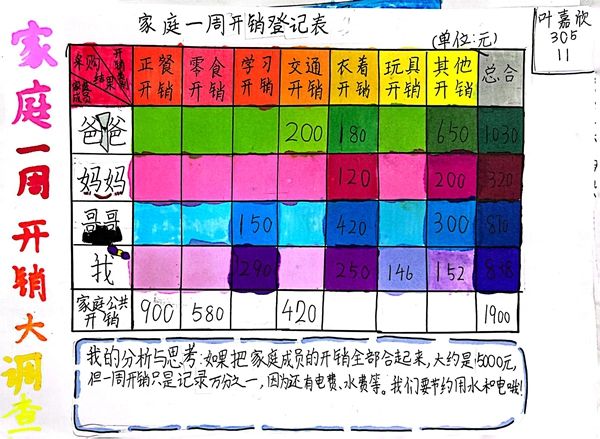 家庭一周开销大调查
家庭一周开销登记表
(单位:元)
叶嘉欣
305
11
采购结果 开销类别 家庭成员
正餐开销 零食开销 学习开销 交通开销 衣着开销 玩具开销 其他开销 总合
爸爸 200 180 650 1030
妈妈 120 200 320
哥哥 150 420 300 870
我 290 250 146 152 838
家庭公共开销 900 580 420 1900
我的分析与思考:如果把家庭成员的开销全部合起来,大约是15000元,
但一周开销只是记录万分之一,因为还有电费、水费等。我们要节约用水和电哦!